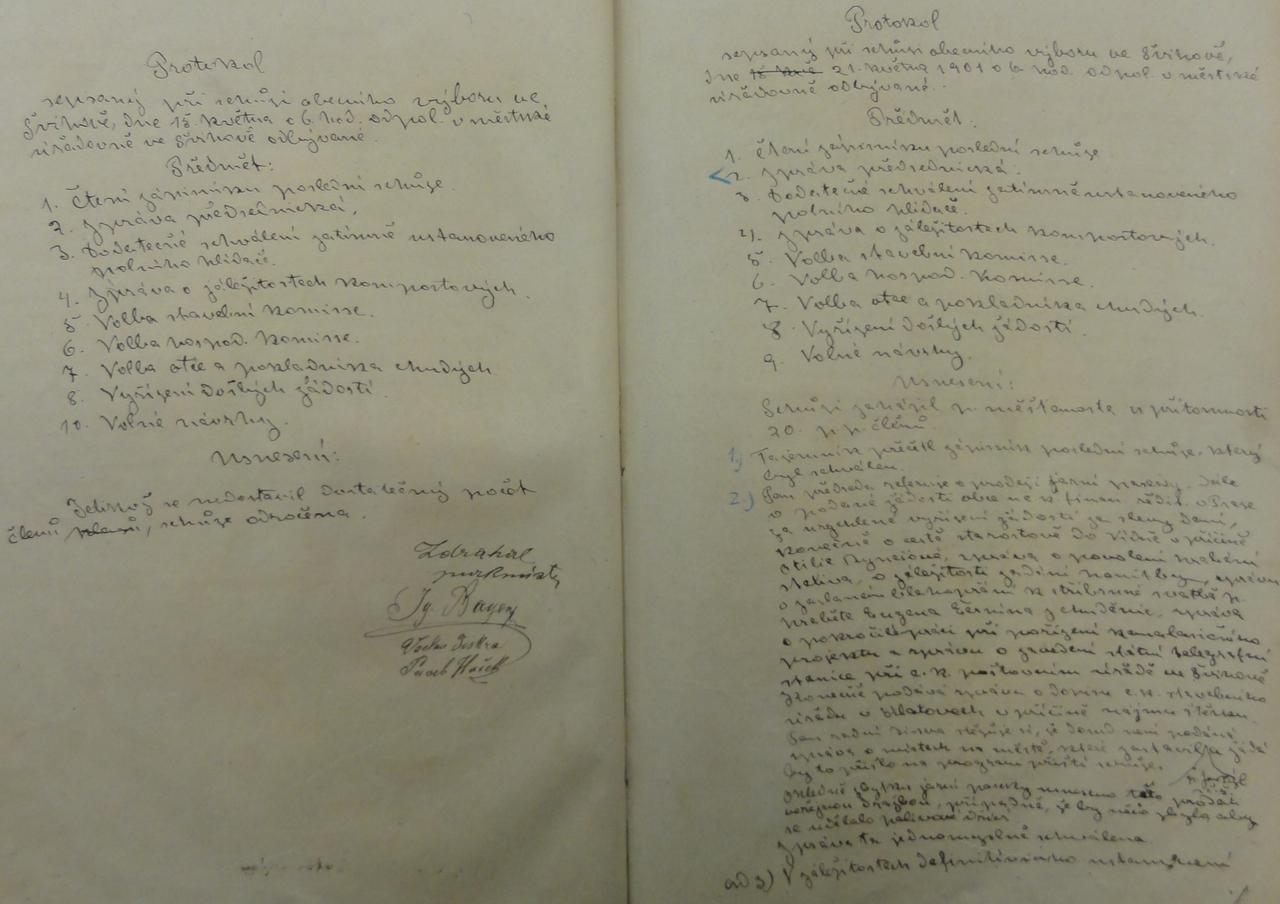 Protokol
sepsaný při schůzi obecního výboru ve
Švihově, dne 18. května o 6. hod. odpol. v městské
úřadovně ve Švihově odbývané.
Předmět:
1. Čtení zápisníku poslední schůze.
2. Zpráva předsednická,
3. Dodatečné schválení zatímně ustanoveného
polního hlídače.
4. Zpráva o záležitostech kompostových.
5. Volba stavební komisse.
6. Volba hospod. komisse.
7. Volba otce a pokladníka chudých
8. Vyřízení došlých žádostí.
10. Volné návrhy.
Usnesení:
Jelikož se nedostavil dostatečný počet
členů, schůze odročena.
Zdrahal
purkmistr
Ig. Bayer
Protokol
sepsaný při schůzi obecního výboru ve Švihově,
dne 21. května 1901 o 6 hod. odpol. v městské
úřadovně odbývané.
Předmět:
1. Čtení zápisníku poslední schůze.
2. Zpráva předsednická.
3. Dodatečné schválení zatímně ustanoveného
polního hlídače.
4. Zpráva o záležitostech kompostových.
5. Volba stavební komisse.
6. Volba hospod. komisse.
7. Volba otce a pokladníka chudých.
8. Vyřízení došlých žádostí.
9. Volné návrhy.
Usnesení:
Schůzi zahájil p. měšťanosta u přítomnosti
20. p.p. členů.
1.) Tajemník přečetl zápisník poslední schůze, který
byl schválen.
2.) Pan předseda referuje o prodeji jarní, dále
o podané žádosti obce na finan. řědit. v Praze
za vyřízení žádosti za daní,
konečně o cestě starostově do Vídně v příčině
zpráva o povolení
steliva, o záležitosti zpráva
o zaslaném blahopřání k stříbrné svatbě p.
hraběte Eugena Černína z Chudenic, zpráva
o práci při pořízení kanalisačního
projektu a zprávu o zavedení státní telegrafní
stanice při c. k. poštovním úřadě ve Švihově
Konečně podává zprávu o dopisu c. k. stavebního
úřadu v Klatovech v příčině nájmu
Pan radní stěžuje si, že dosud není podána
zpráva o místech na městě, které
by to přišlo na program příští schůze.
Ohledně zbytku jarní usneseno prodati
veřejnou dražbou, případně, že by něco zbylo aby
se udělalo palivové dříví
Zpráva ta jednomyslně schválena.
ad 3) V záležitostech definitivního ustanovení